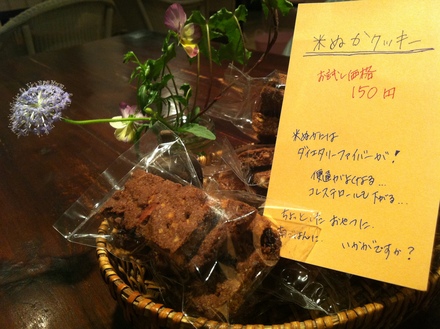 米ぬかクッキー
お試し価格
150円
米ぬかには
ダイエタリーファイバーが！
便通がよくなる...
コレステロールも下がる...
ちょっとした おやつに
いかがですか？